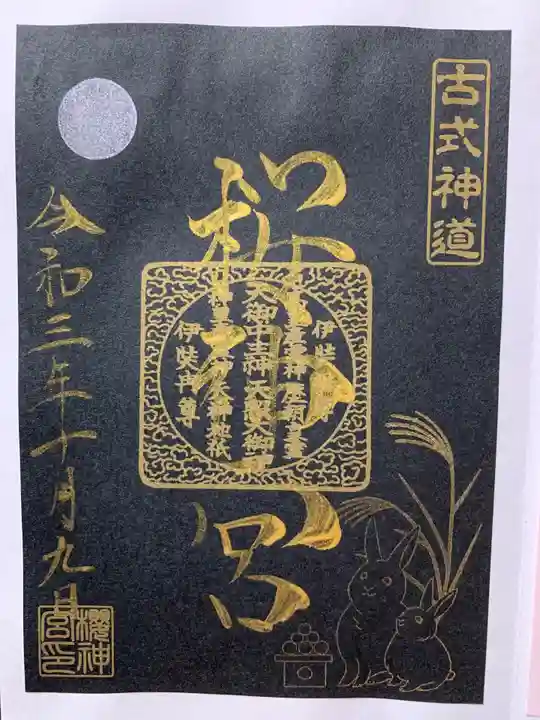 古式神道
櫻神宮
天御中主神 天照大御神
伊弉冉尊
令和三年十月九日
櫻神
宮印